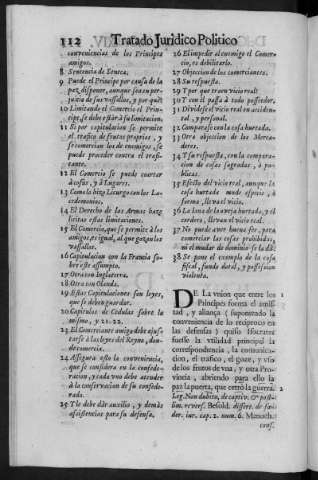 112 Tratado Juridico Politico
conveniencias de los Principes
amigos.
8 Sentencia de Seneca.
9 Puede el Principe por causa de la
paz, disponer, aunque sea en per-
juizio de sus vassallos, y por què?
10 Limitando el Comercio el Prin-
cipe, se debe estàr à su limitacion.
11 Si por capitulacion se permite
el trafico de frutos proprios, y
se comercian los de enemigos, se
puede proceder contra el trasg-
ressante.
12 El Comercio se puede coartar
à cosas, y à Lugares.
13 Como lo hizo Licurgo con los La-
cedemonios.
14 El Derecho de las Armas haze
licitas estas limitaciones.
15 El Comercio, que se permite à los
amigos, es igual, al que gozan los
vassallos.
16 Capitulacion con la Francia so-
bre este assumpto.
17 Otra con Inglaterra.
18 Otra con Olanda.
19 Estas Capitulaciones son leyes,
que se deben guardar.
20 Capitulos de Cedulas sobre lo
mismo, y 21. 22.
23 El Comerciante amigo debe ajus-
tarse à las leyes del Reyno, don-
de comercia.
24 Assegura esto la conveniencia,
que se considera en la confede-
racion, y cada uno debe atender
à la conservacion de su confede-
rado.
25 Y le debe dàr auxilio, y demàs
assistencias para su defensa,
26 El impedir al enemigo el Comer-
cio, es debilitarlo.
27 Objecion de los contrarios.
28 Su respuesta.
29 Y por que traen vicio real
30 Y con èl passa à todo posseedor.
31 Dividese el vicio real en acciden-
tal, y personal.
32 Comparase con la cosa hurtada.
33 Otra objecion de los Merca-
deres.
34 Y su respuesta, con la compara-
cion de cosas sagradas, ò pu-
blicas.
35 Es tal el vicio real, aunque la
cosa hurtada mude especie, ò
forma, lleva el vicio.
36 La lana de la oveja hurtada, y el
cordero, lleva el vicio real.
37 No puede aver buena fee, para
comerciar las cosas prohibidas,
ni el mudar de dominio se la dà
38 Se pone el exemplo de la cosa
fiscal, fundo dotal, y possession
violenta.
DE La union que entre los
Principes forma el amis-
tad, y aliança (supuestado la
conveniencia de lo reciproco en
las defensas) quiso Isocrates
fuesse la utilidad principal la
correspondencia, la comunica-
cion, el trafico, el gozar, y usu-
fruto de los frutos de una, y otra Pro-
vincia, abriendo para ello la
paz la puerta, que cerrò la guerra. 2
Leg. Non dubito, de captiv. & post-
lim. revers. Besold. dissert. de fœ-
der. iur. cap. 2. num. 6. Manoch.
conf.